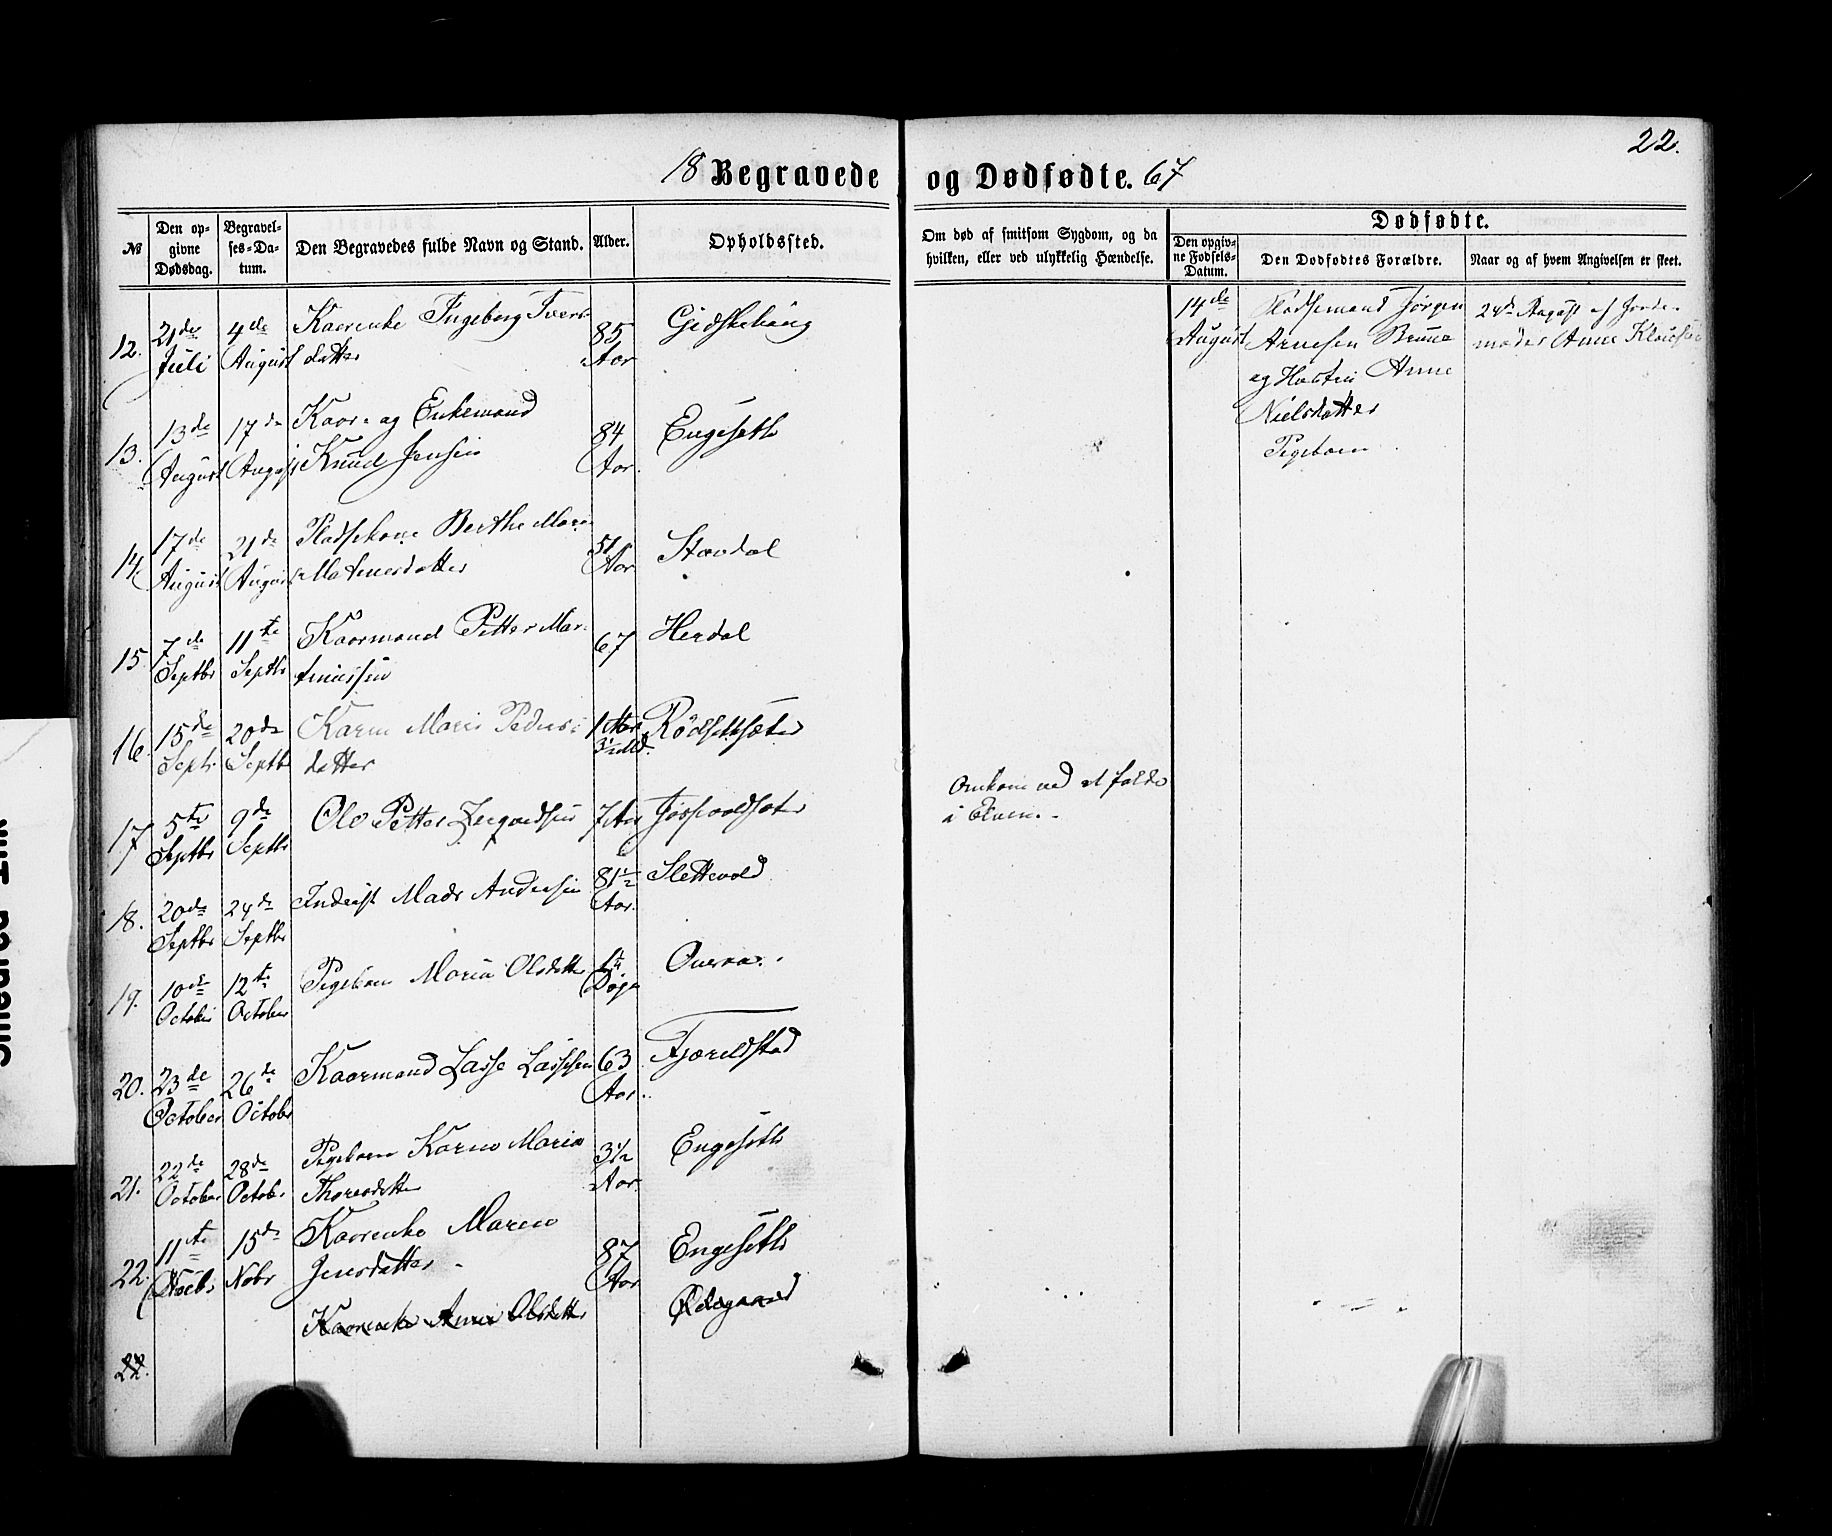 22.
18 Begravede og Dødfødte. 67
№
Den op-
givne
Dødsdag.
Begravel-
ses-Da-
tum.
Den Begravedes fulde Navn og Stand.
Alder.
Opholdssted.
Om død af smitsom Sygdom, og da
hvilken, eller ved ulykkelig Hændelse.
Dødfødte.
Den opgiv-
ne Fødsels-
Datum.
Den Dødfødtes Forældre.
Naar og af hvem Angivelsen er skeet.
12. 21de Juli 4de August Kaarenke Ingeborg Ivers
datter 85 Aar Gidskehaug
14de August
Pladsemand Jørgen
Arnesen Brune
og Hustru Anne
Nielsdatter
Pigebarn
24de August af Jorde-
moder Anne
13. 13de August 17de August Kaar- og Enkemand
Knud Jensen 84 Aar. Engeseth
14. 17de August 21de August Pladsekone Berthe Marie
51 Aar Stavdal
15. 7de Septbr 11te Septbr Kaarmand Petter Mar-
tinussen 67 Herdal
16. 15de Septr 20de Septbr Karen Marie Peders-
datter 1 Aar 3½ Md. Rødsetsæter
17 5te Septbr 9de Septbr Ole Petter 7 Aar
Omkom ved at falde
i Elven.
18. 20de Septbr 24de Septbr Inderst Mads Andersen 81½ Aar. Slettevold
19. 10de October 12te October Pigebarn Maria Olsdatter Overaa.
20. 23de October 26de Octobr Kaarmand Lasse Lassesen 63 Aar. Fjøreldstad
21. 22de October 28de Octobr Pigebarn Karen Maria
3½ Aar. Engeseth
22. 11te Novbr 15de Nobr Kaarenke Maren
Jensdatter 87 Aar Engeseth
Kaarenke Anne Olsdatter Ødegaard
22.
Smeared Ink